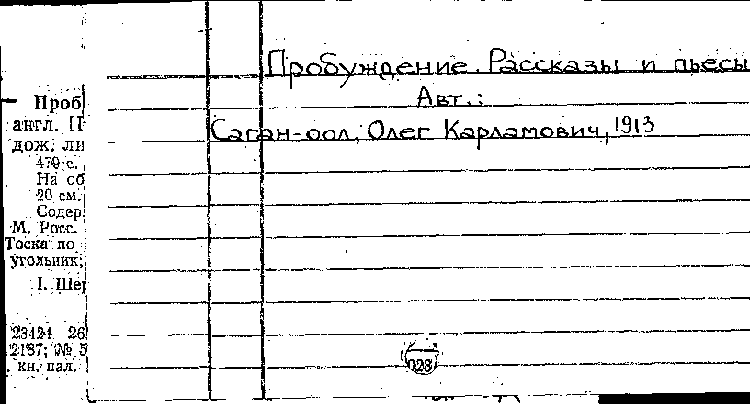 Пробуждение. Рассказы и пьесы
Авт.:
Саган-оол, Олег Карламович, 1913
Проб
англ. [П
дож. ли
470 с.
На сб
20 см.
Содер
М. Росс.
Тоска по
угольник;
I. Ше
23421 26
2187; № 5
кн. пал.
028